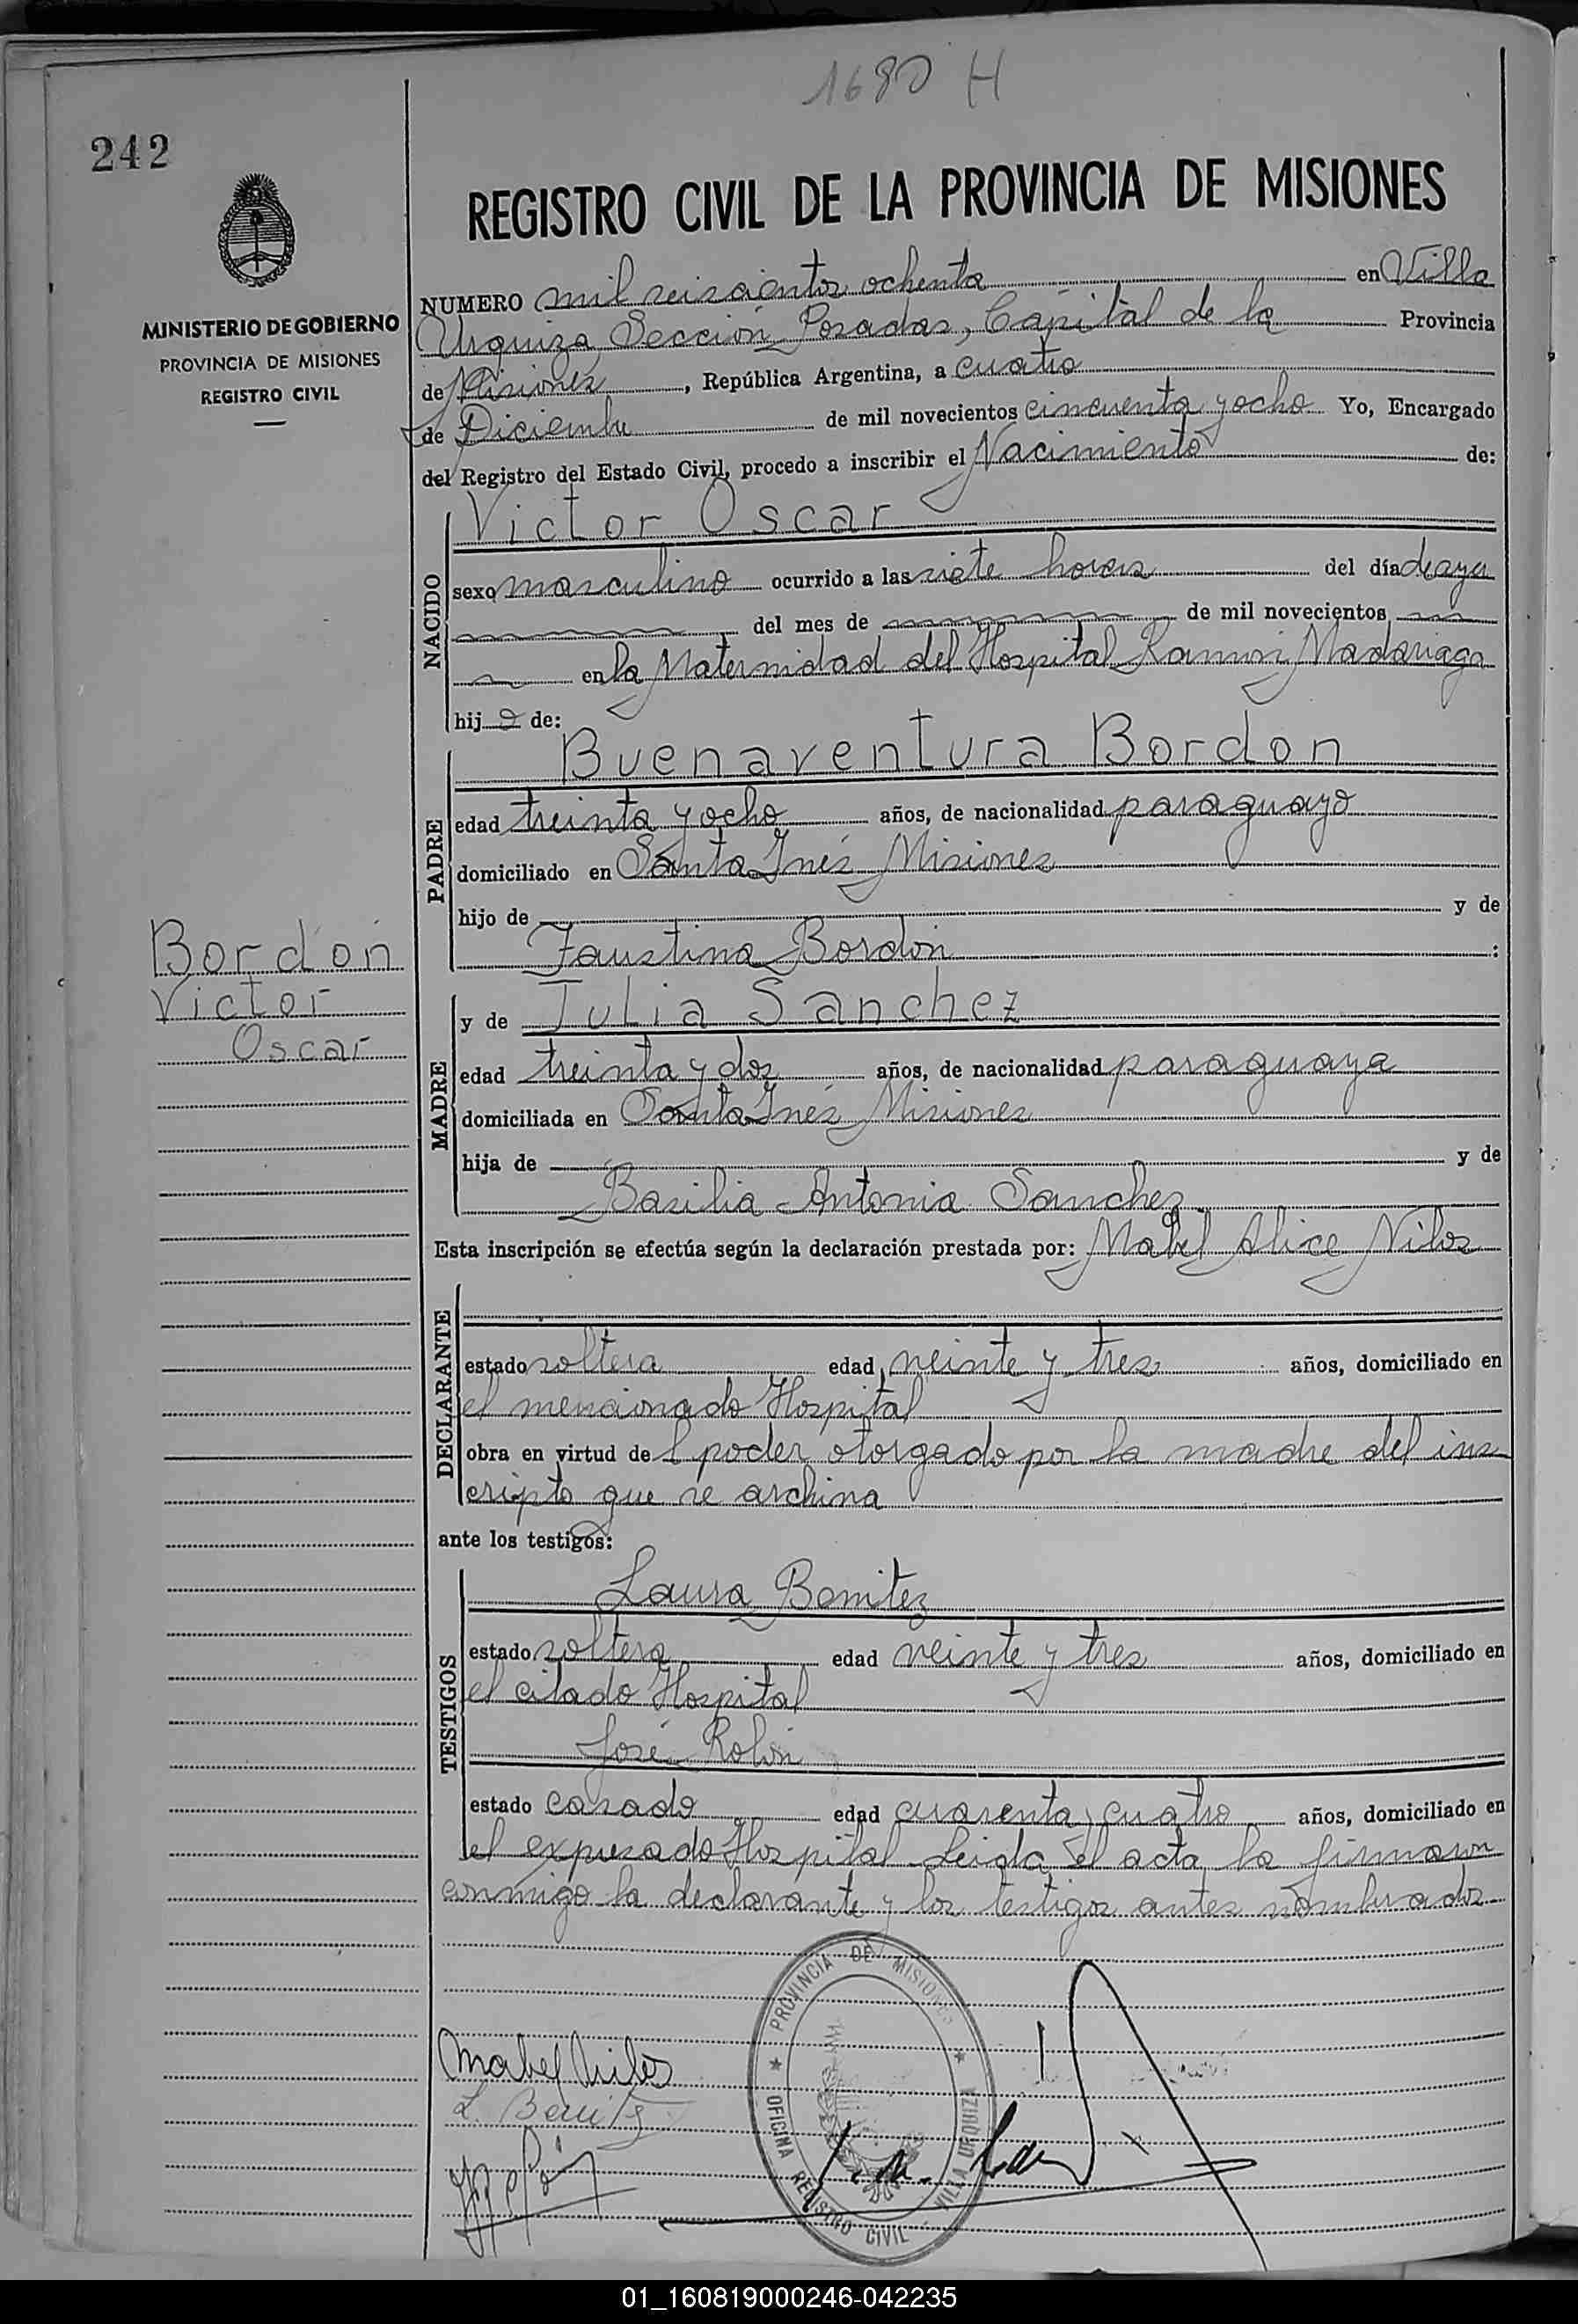 1680 H
242
REGISTRO CIVIL DE LA PROVINCIA DE MISIONES
MINISTERIO DE GOBIERNO
PROVINCIA DE MISIONES
REGISTRO CIVIL
NUMERO mil seiscientos ochenta en Villa
Urquiza Sección Posadas, Capital de la Provincia
de Misiones, República Argentina, a cuatro
de Diciembre de mil novecientos cincuenta y ocho Yo, Encargado
del Registro del Estado Civil, procedo a inscribir el Nacimiento de:
NACIDO
Victor Oscar
sexo masculino ocurrido a las siete horas del día de ayer
del mes de de mil novecientos
en la Maternidad del Hospital Ramon Madariaga
hijo de:
PADRE
Buenaventura Bordon
edad treinta y ocho años, de nacionalidad paraguayo
domiciliado en Santa Inés Misiones
hijo de y de
Faustina Bordón :
Bordón
Victor
Oscar
MADRE
y de Julia Sanchez
edad treinta y dos años, de nacionalidad paraguaya
domiciliada en Santa Inés Misiones
hija de y de
Basilia Antonia Sanchez
Esta inscripción se efectúa según la declaración prestada por: Mabel Alice Nilos
DECLARANTE
estado soltera edad veinte y tres años, domiciliado en
el mencionado Hospital
obra en virtud del poder otorgado por la madre del ins
cripto que se archiva
ante los testigos:
TESTIGOS
Laura Benitez
estado soltera edad veinte y tres años, domiciliado en
el citado Hospital
José Rolón
estado casado edad cuarenta y cuatro años, domiciliado en
el expresado Hospital Leida el acta la firmaron
conmigo la declarante y los testigos antes nombrados
PROVINCIA DE MISIONES
OFICINA REGISTRO CIVIL VILLA URQUIZA
Mabel Nilos
L. Benitez
01_160819000246-042235